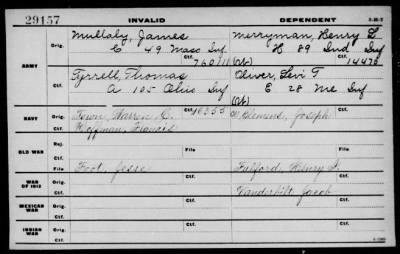 29157 INVALID DEPENDENT 3-26-2
ARMY
Orig. Mullaly, James Merryman, Henry L
E 49 Mass Inf H 89 Ind Inf
Ctf. 760111 (Ct) 14476
Orig. Tyrrell, Thomas Oliver, Levi T
A 105 Ohio Inf E 28 Me Inf
Ctf. (Ct)
NAVY
Orig. Town, Warren C. 40355 Clemens, Joseph
Ctf. Hoffman, Francis
OLD WAR
Rej.
Ctf.
File File
WAR OF 1812
Orig. Foot, Jesse Fulford, Henry
Ctf. Vanderbilt, Jacob
MEXICAN WAR
Orig.
Ctf.
INDIAN WAR
Orig.
Ctf.